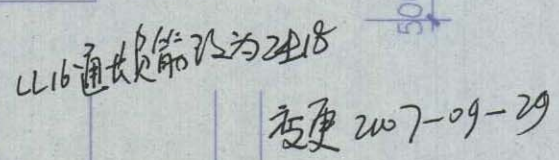 LL16通长负筋改为2⌀18
变更 2007-09-29
50